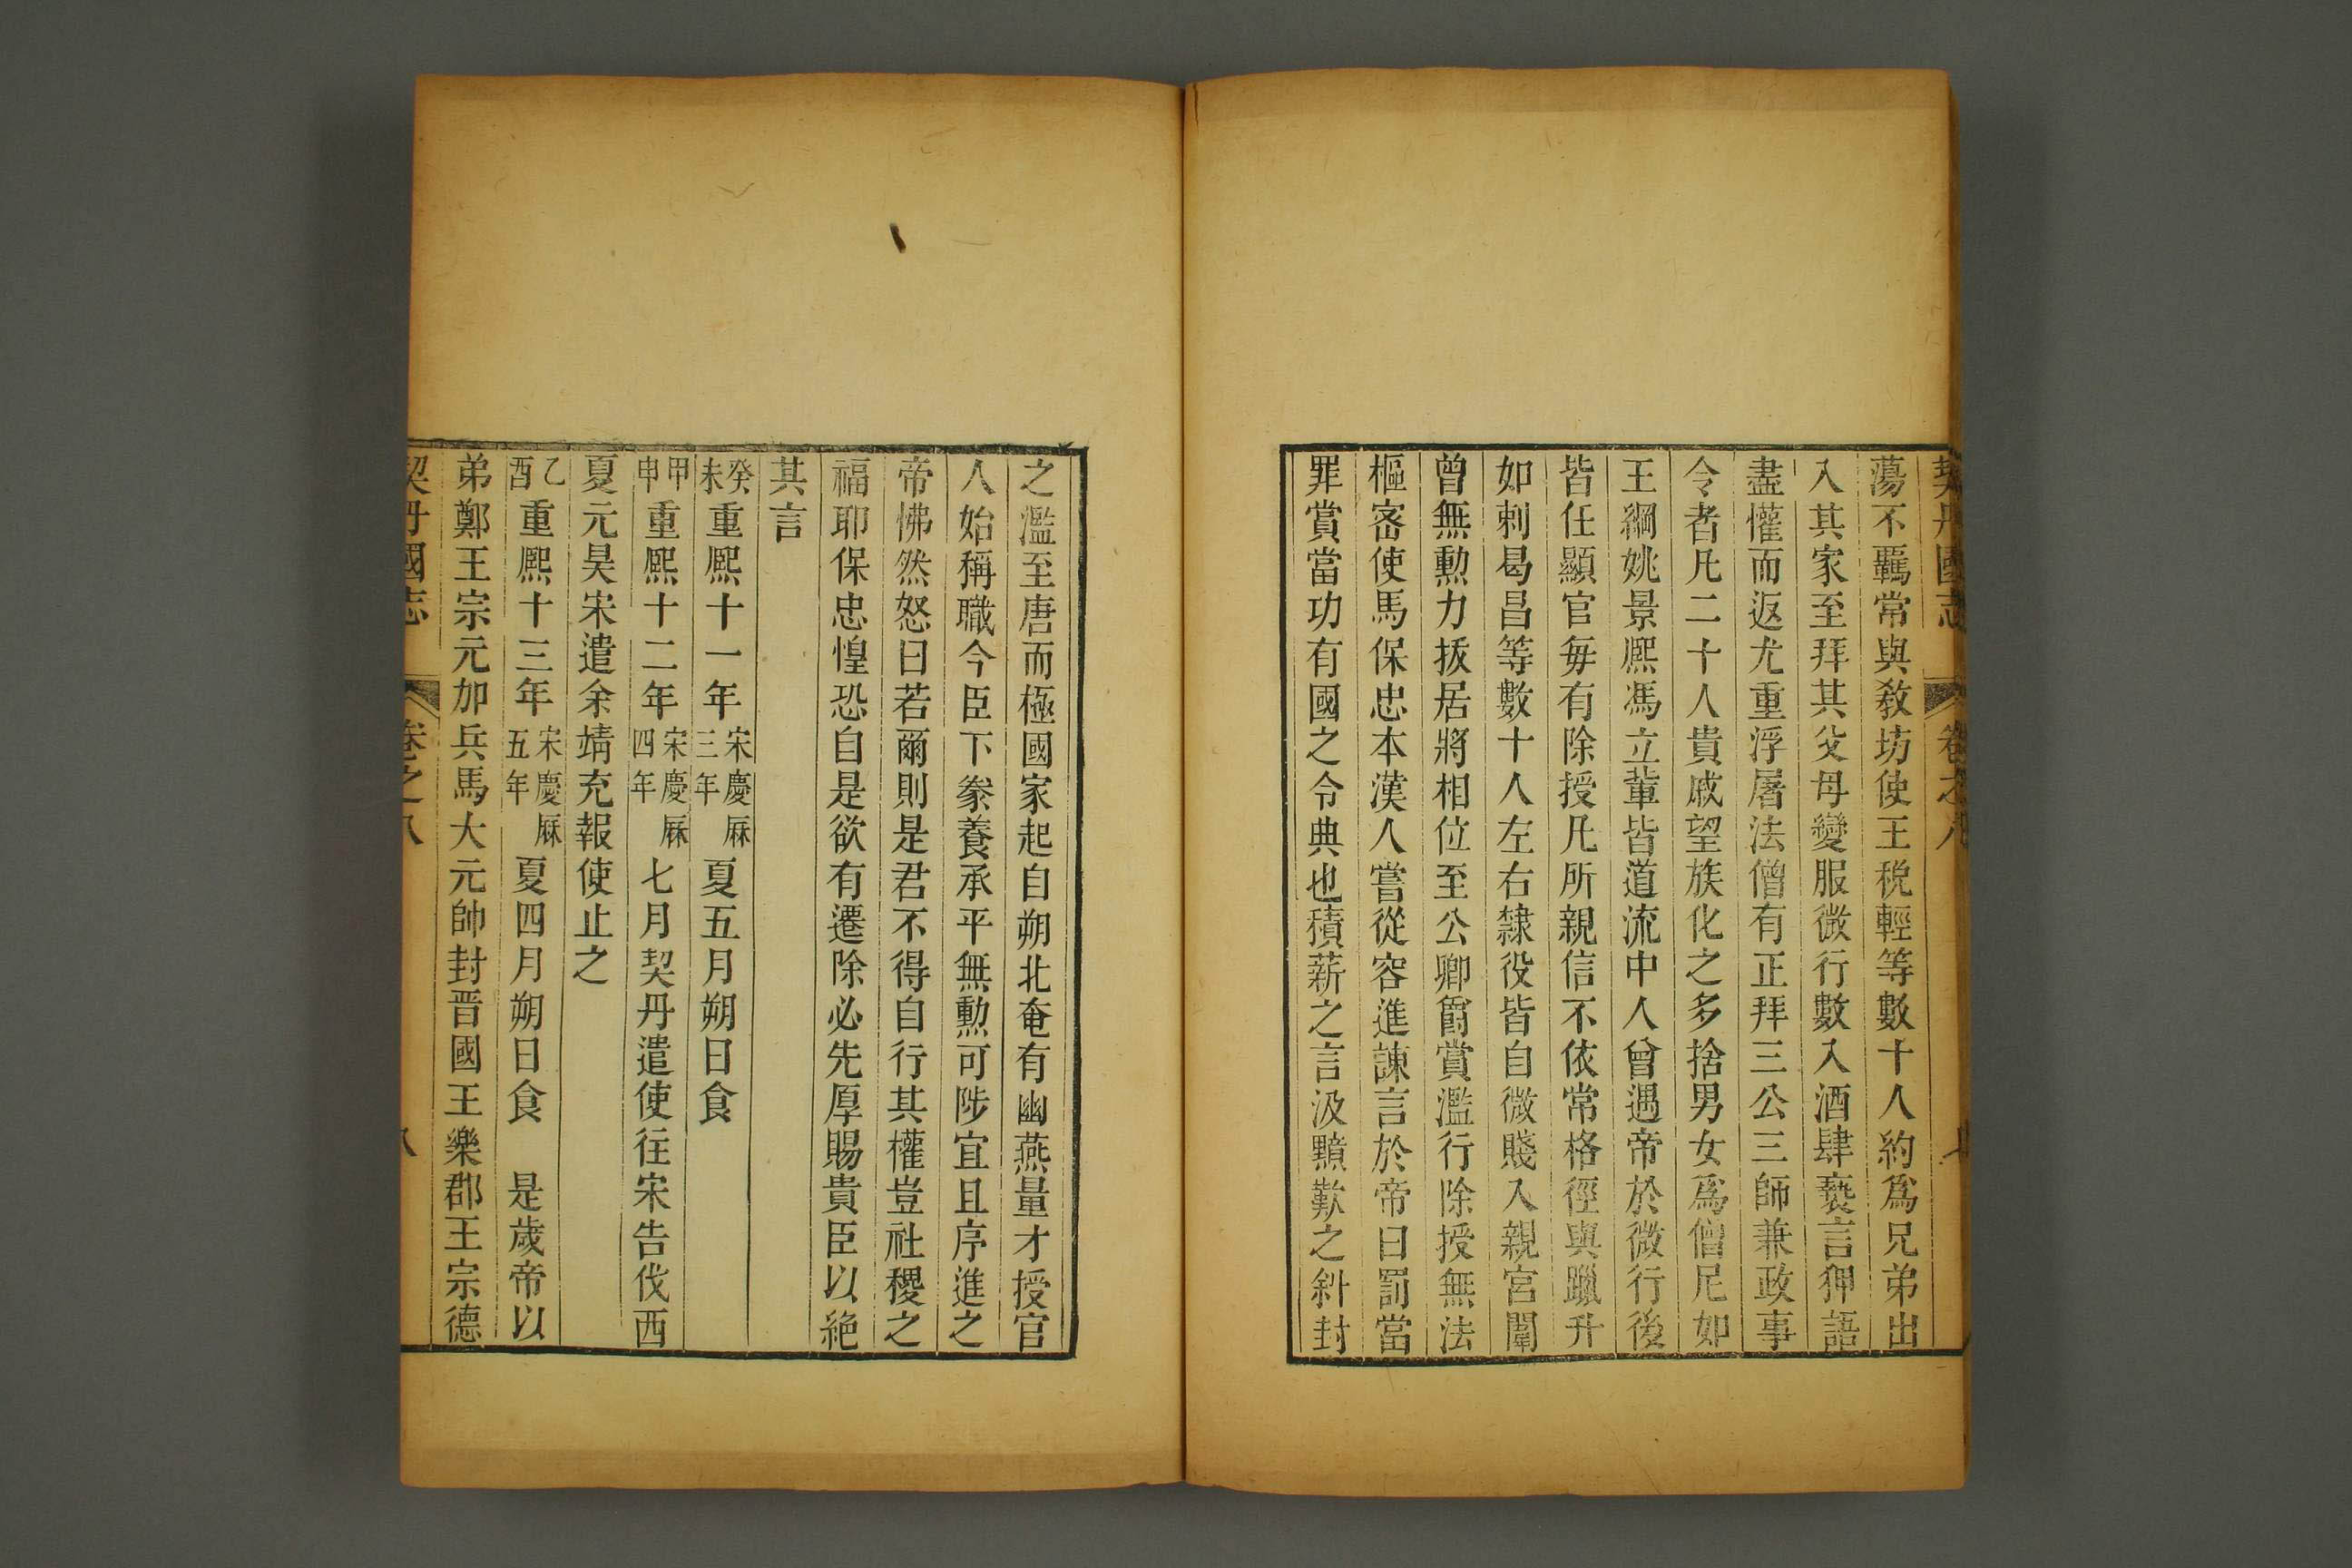 契丹國志 卷之八 七
蕩不羈常與敎坊使王稅輕等數十人約爲兄弟出
入其家至拜其父母變服微行數入酒肆褻言狎語
盡懽而返尤重浮屠法僧有正拜三公三師兼政事
令者凡二十人貴戚望族化之多捨男女爲僧尼如
王綱姚景熙馮立輩皆道流中人曾遇帝於微行後
皆任顯官每有除授凡所親信不依常格徑與躐升
如剌曷昌等數十人左右隸役皆自微賤入親宮闈
曾無勲力拔居將相位至公卿爵賞濫行除授無法
樞密使馬保忠本漢人嘗從容進諫言於帝曰罰當
罪賞當功有國之令典也積薪之言汲黯歎之斜封
之濫至唐而極國家起自朔北奄有幽燕量才授官
人始稱職今臣下豢養承平無勲可陟宜且序進之
帝怫然怒曰若爾則是君不得自行其權豈社稷之
福耶保忠惶恐自是欲有遷除必先厚賜貴臣以絶
其言
癸未重熙十一年宋慶厤三年夏五月朔日食
甲申重熙十二年宋慶厤四年七月契丹遣使往宋告伐西
夏元昊宋遣余靖充報使止之
乙酉重熙十三年宋慶厤五年夏四月朔日食 是歲帝以
弟鄭王宗元加兵馬大元帥封晋國王樂郡王宗德
契丹國志 卷之八 八